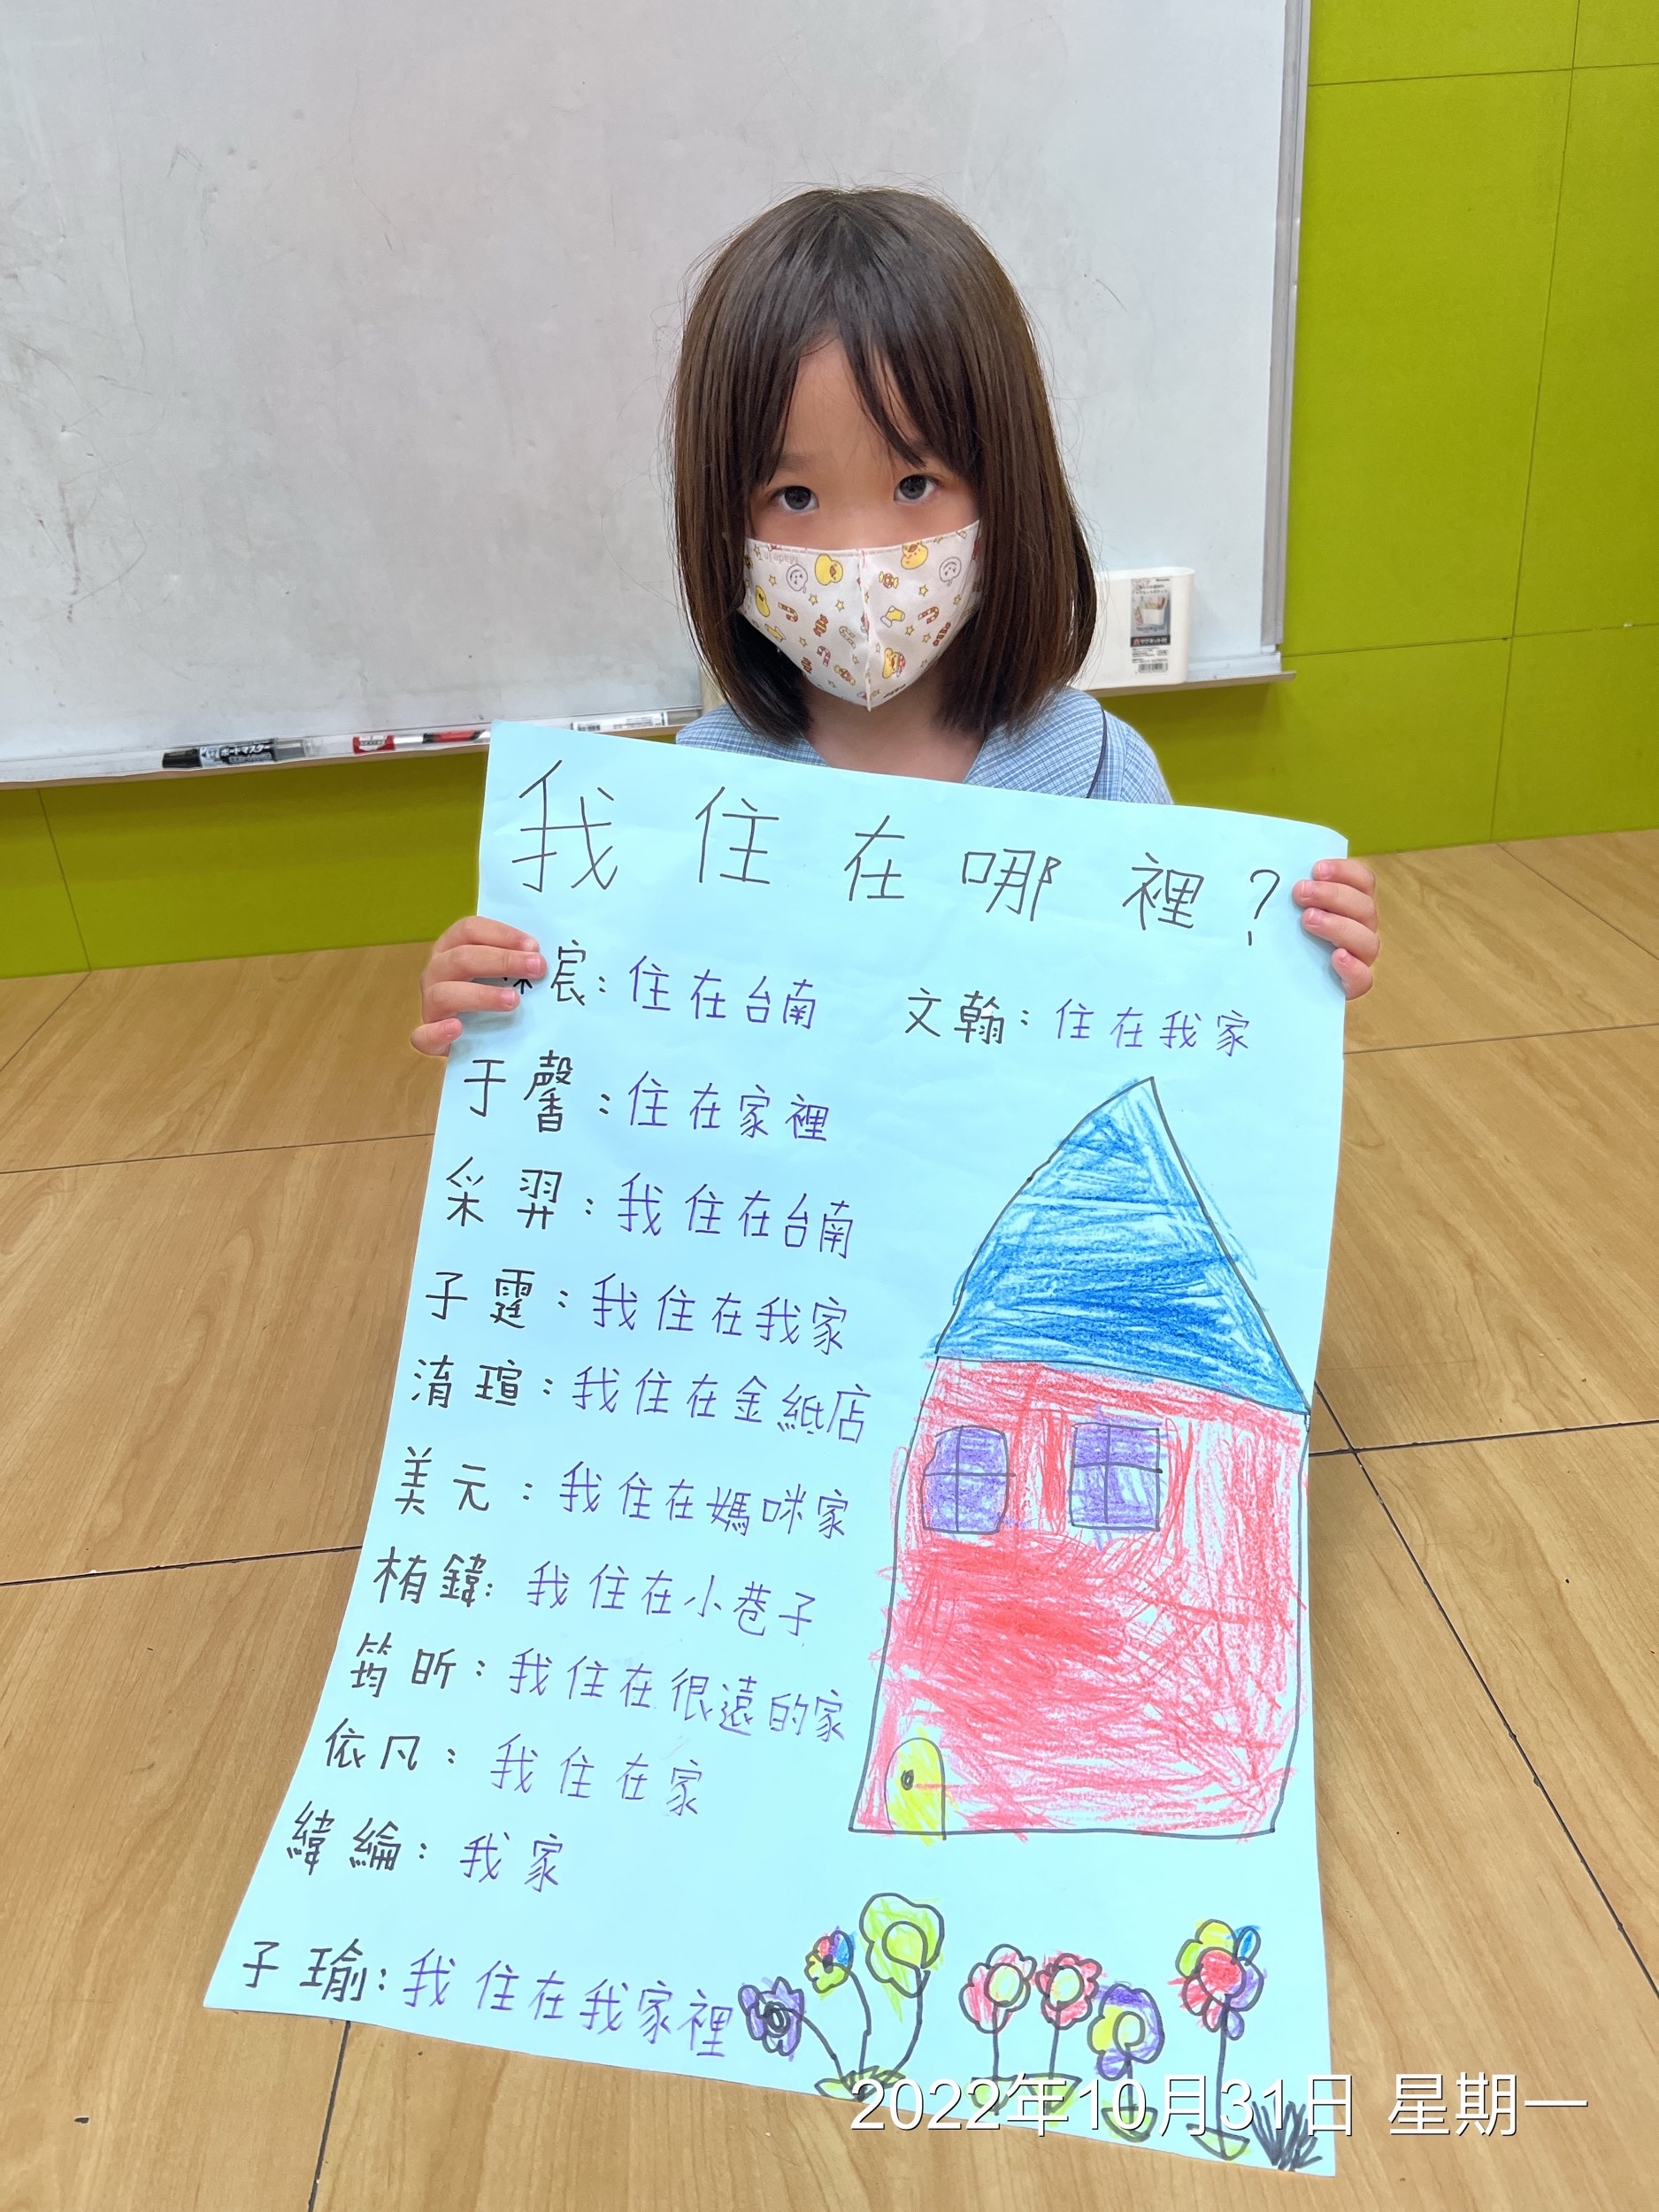 我住在哪裡?
宸:住在台南
文翰:住在我家
于馨:住在家裡
采羿:我住在台南
子霆:我住在我家
淯瑄:我住在金紙店
美元:我住在媽咪家
栯鍏:我住在小巷子
筠昕:我住在很遠的家
依凡:我住在家
緯綸:我家
子瑜:我住在我家裡
2022年10月31日 星期一